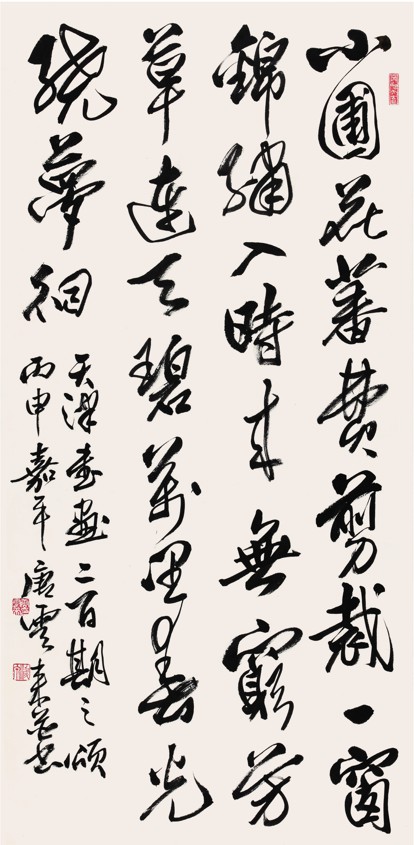 小圃花蕃费剪裁一窗
錦繡入時來無窮芳
草連天碧萬里春光
繞夢徊
天津書畫二百期之頌
丙申嘉平唐雲來